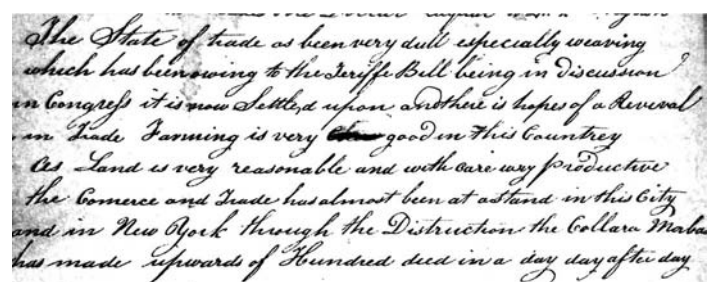 The State of trade as been very dull especially weaving
which has been owing to the Teriffe Bill being in Discussion
in Congress it is now Settled upon and there is hopes of a Revival
in Trade Farming is very good in this Countrey
As Land is very reasonable and with care very productive
the Comerce and Trade has almost been at a stand in this City
and in New York through the Distruction the Collara Morbus
has made upwards of Hundred died in a day day after day